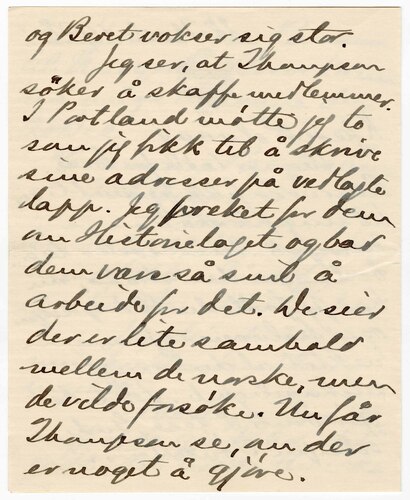 og Beret vokser sig stor.
Jeg ser, at Thompson
søker å skaffe medlemmer.
I Portland møtte jeg to
som jeg fikk til å skrive
sine adresser på vedlagte
lapp. Jeg prεket for dem
om Historielaget og bad
dem være så snil å
arbeide for det. De sier
der er lite samhold
mellem de norske, men
de vilde forsøke. Nu får
Thompson se, om der
er noget å gjøre.